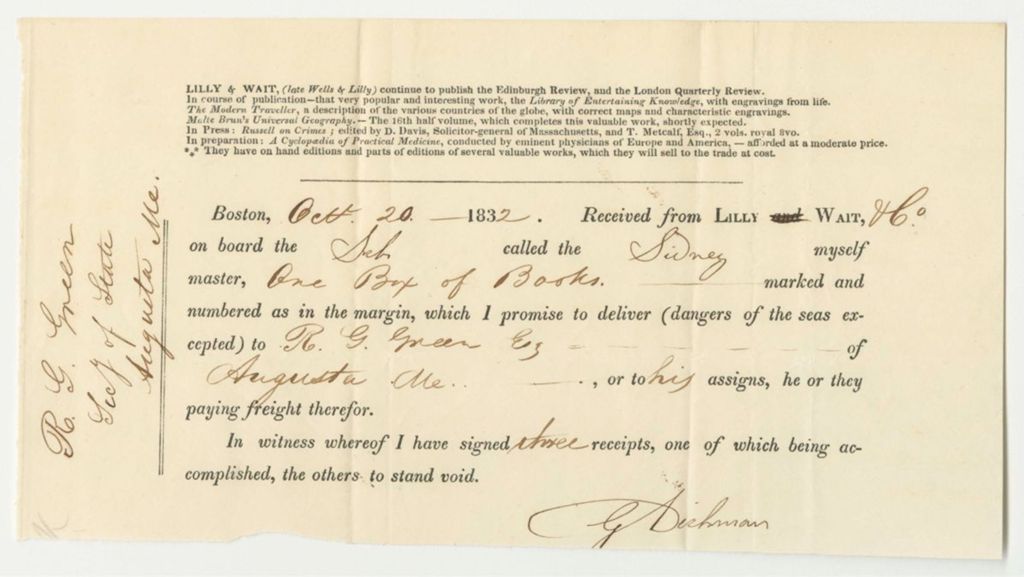 LILLY & WAIT, (late Wells & Lilly) continue to publish the Edinburgh Review, and the London Quarterly Review.
In course of publication—that very popular and interesting work, the Library of Entertaining Knowledge, with engravings from life.
The Modern Traveller, a description of the various countries of the globe, with correct maps and characteristic engravings.
Malte Brun's Universal Geography.— The 16th half volume, which completes this valuable work, shortly expected.
In Press: Russell on Crimes; edited by D. Davis, Solicitor-general of Massachusetts, and T. Metcalf, Esq., 2 vols. royal 8vo.
In preparation: A Cyclopædia of Practical Medicine, conducted by eminent physicians of Europe and America, — afforded at a moderate price.
*⁎* They have on hand editions and parts of editions of several valuable works, which they will sell to the trade at cost.
Boston, Oct. 20. —1832. Received from LILLY and WAIT, & Co
on board the Sch called the Sidney myself
master, One Box of Books. marked and
numbered as in the margin, which I promise to deliver (dangers of the seas ex-
cepted) to R. G. Green Esq — of
Augusta Me. — , or to his assigns, he or they
paying freight therefor.
In witness whereof I have signed three receipts, one of which being ac-
complished, the others to stand void.
R. G. Green
Sec'y of State
Augusta Me.